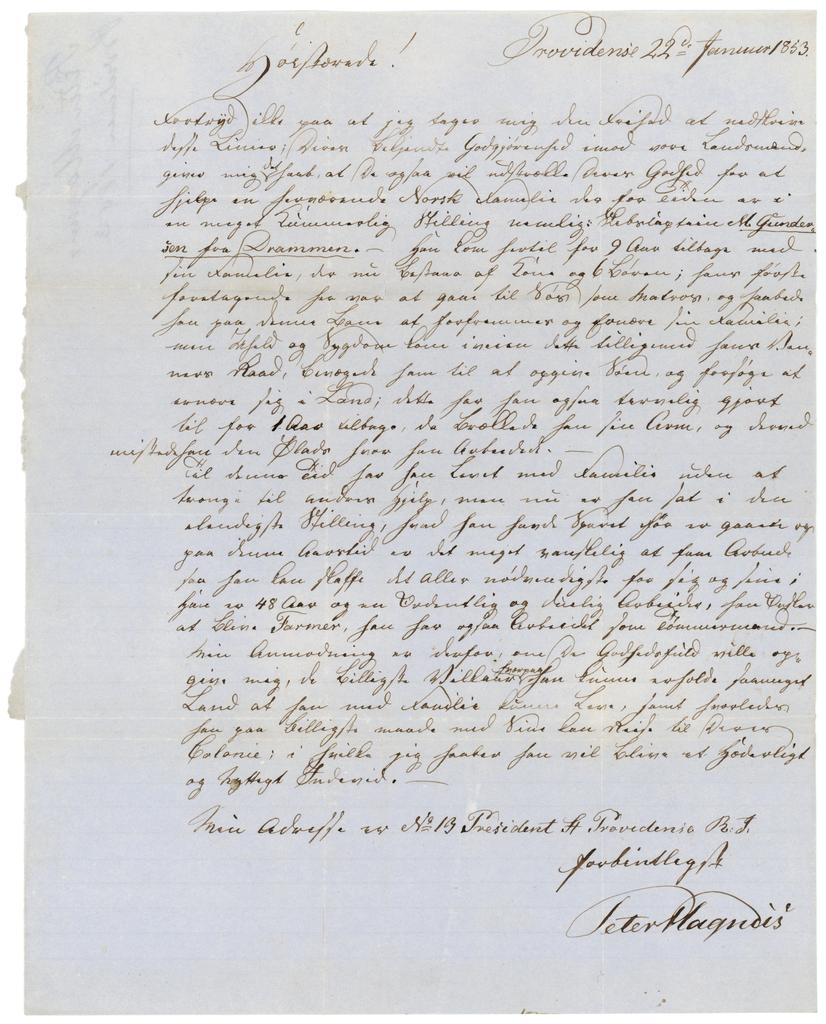 Providense 22de Januar 1853.
Höistærede!
Fortryd ikke paa at jeg tager mig den Frihed at nedskrive
desse Linier; Deres bekjendte Godgjørenhed imod vore Landsmænd,
giver mig det Haab, at De ogsaa vil udstrække Deres Godhed for at
hjelpe en herværende Norsk Familie der for Tiden er i
en meget Kummerlig Stilling nemlig: Skibscaptein M. Gunder-
sen fra Drammen. — Han kom hertil for 9 Aar tilbage med
sin Familie, der nu bestaaer af Kone og 6 Børen; hans første
foretagende her var at gaae til Søs som Matros, og haabede
han paa denne Bane at forfremmes og ernære sin Familie;
men Uheld og Sygdom kom iveien dette tilligemed hans Ven-
ners Raad, bevægede ham til at opgive Søen, og forsøge at
ernære sig i Land; dette har han ogsaa tarvelig gjort
til for 1 Aar tilbage, da brækkede han sin Arm, og derved
mistede han den Plads hvor han Arbeidede. —
Til denne Tid har han Levet med Familie uden at
trænge til andres Hjelp, men nu er han sat i den
elendigste Stilling, hvad han havde Sparet før er gaaen og
paa denne Aarstid er det meget vanskelig at faae Arbeide
saa han kan skaffe det Aller nødvendigste for sig og sine;
Han er 48 Aar og en Ordentlig og duelig Arbeider, han Ønsker
at blive Farmer, han har ogsaa Arbeidet som Tømmermand. —
Min Anmodning er derfor, om De Godhedsfuld ville op-
give mig, de billigste Villkaar hvorpaa han kunne erholde saameget
Land at han med Familie kunne Leve, samt hvorledes
han paa billigste maade med Sine kan Reise til Deres
Colonie; i hvilke jeg haaber han vil blive et Hæderligt
og Nyttigt Individ. —
Min Adresse er No 13 President St Providense R. I.
forbindtligst
Peter Magnus